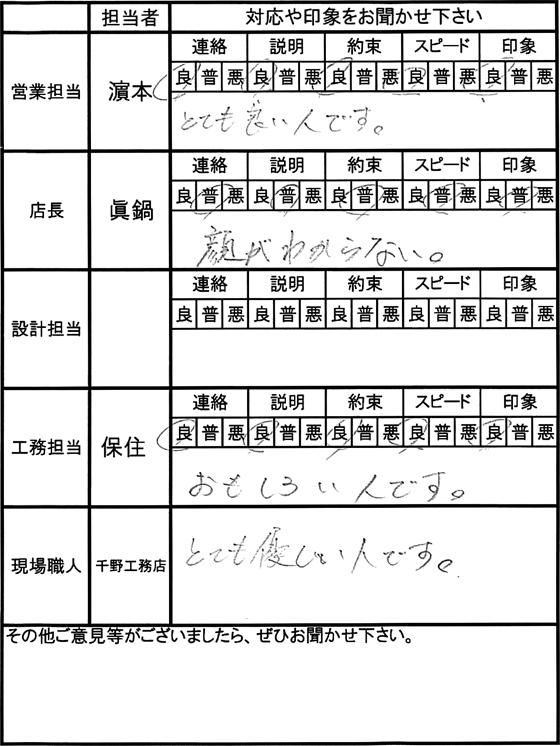 担当者 対応や印象をお聞かせ下さい
営業担当 濵本 連絡 説明 約束 スピード 印象
良 普 悪 良 普 悪 良 普 悪 良 普 悪 良 普 悪
とても良い人です。
店長 眞鍋 連絡 説明 約束 スピード 印象
良 普 悪 良 普 悪 良 普 悪 良 普 悪 良 普 悪
顔がわからない。
設計担当 連絡 説明 約束 スピード 印象
良 普 悪 良 普 悪 良 普 悪 良 普 悪 良 普 悪
工務担当 保住 連絡 説明 約束 スピード 印象
良 普 悪 良 普 悪 良 普 悪 良 普 悪 良 普 悪
おもしろい人です。
現場職人 千野工務店 とても優しい人です。
その他ご意見等がございましたら、ぜひお聞かせ下さい。